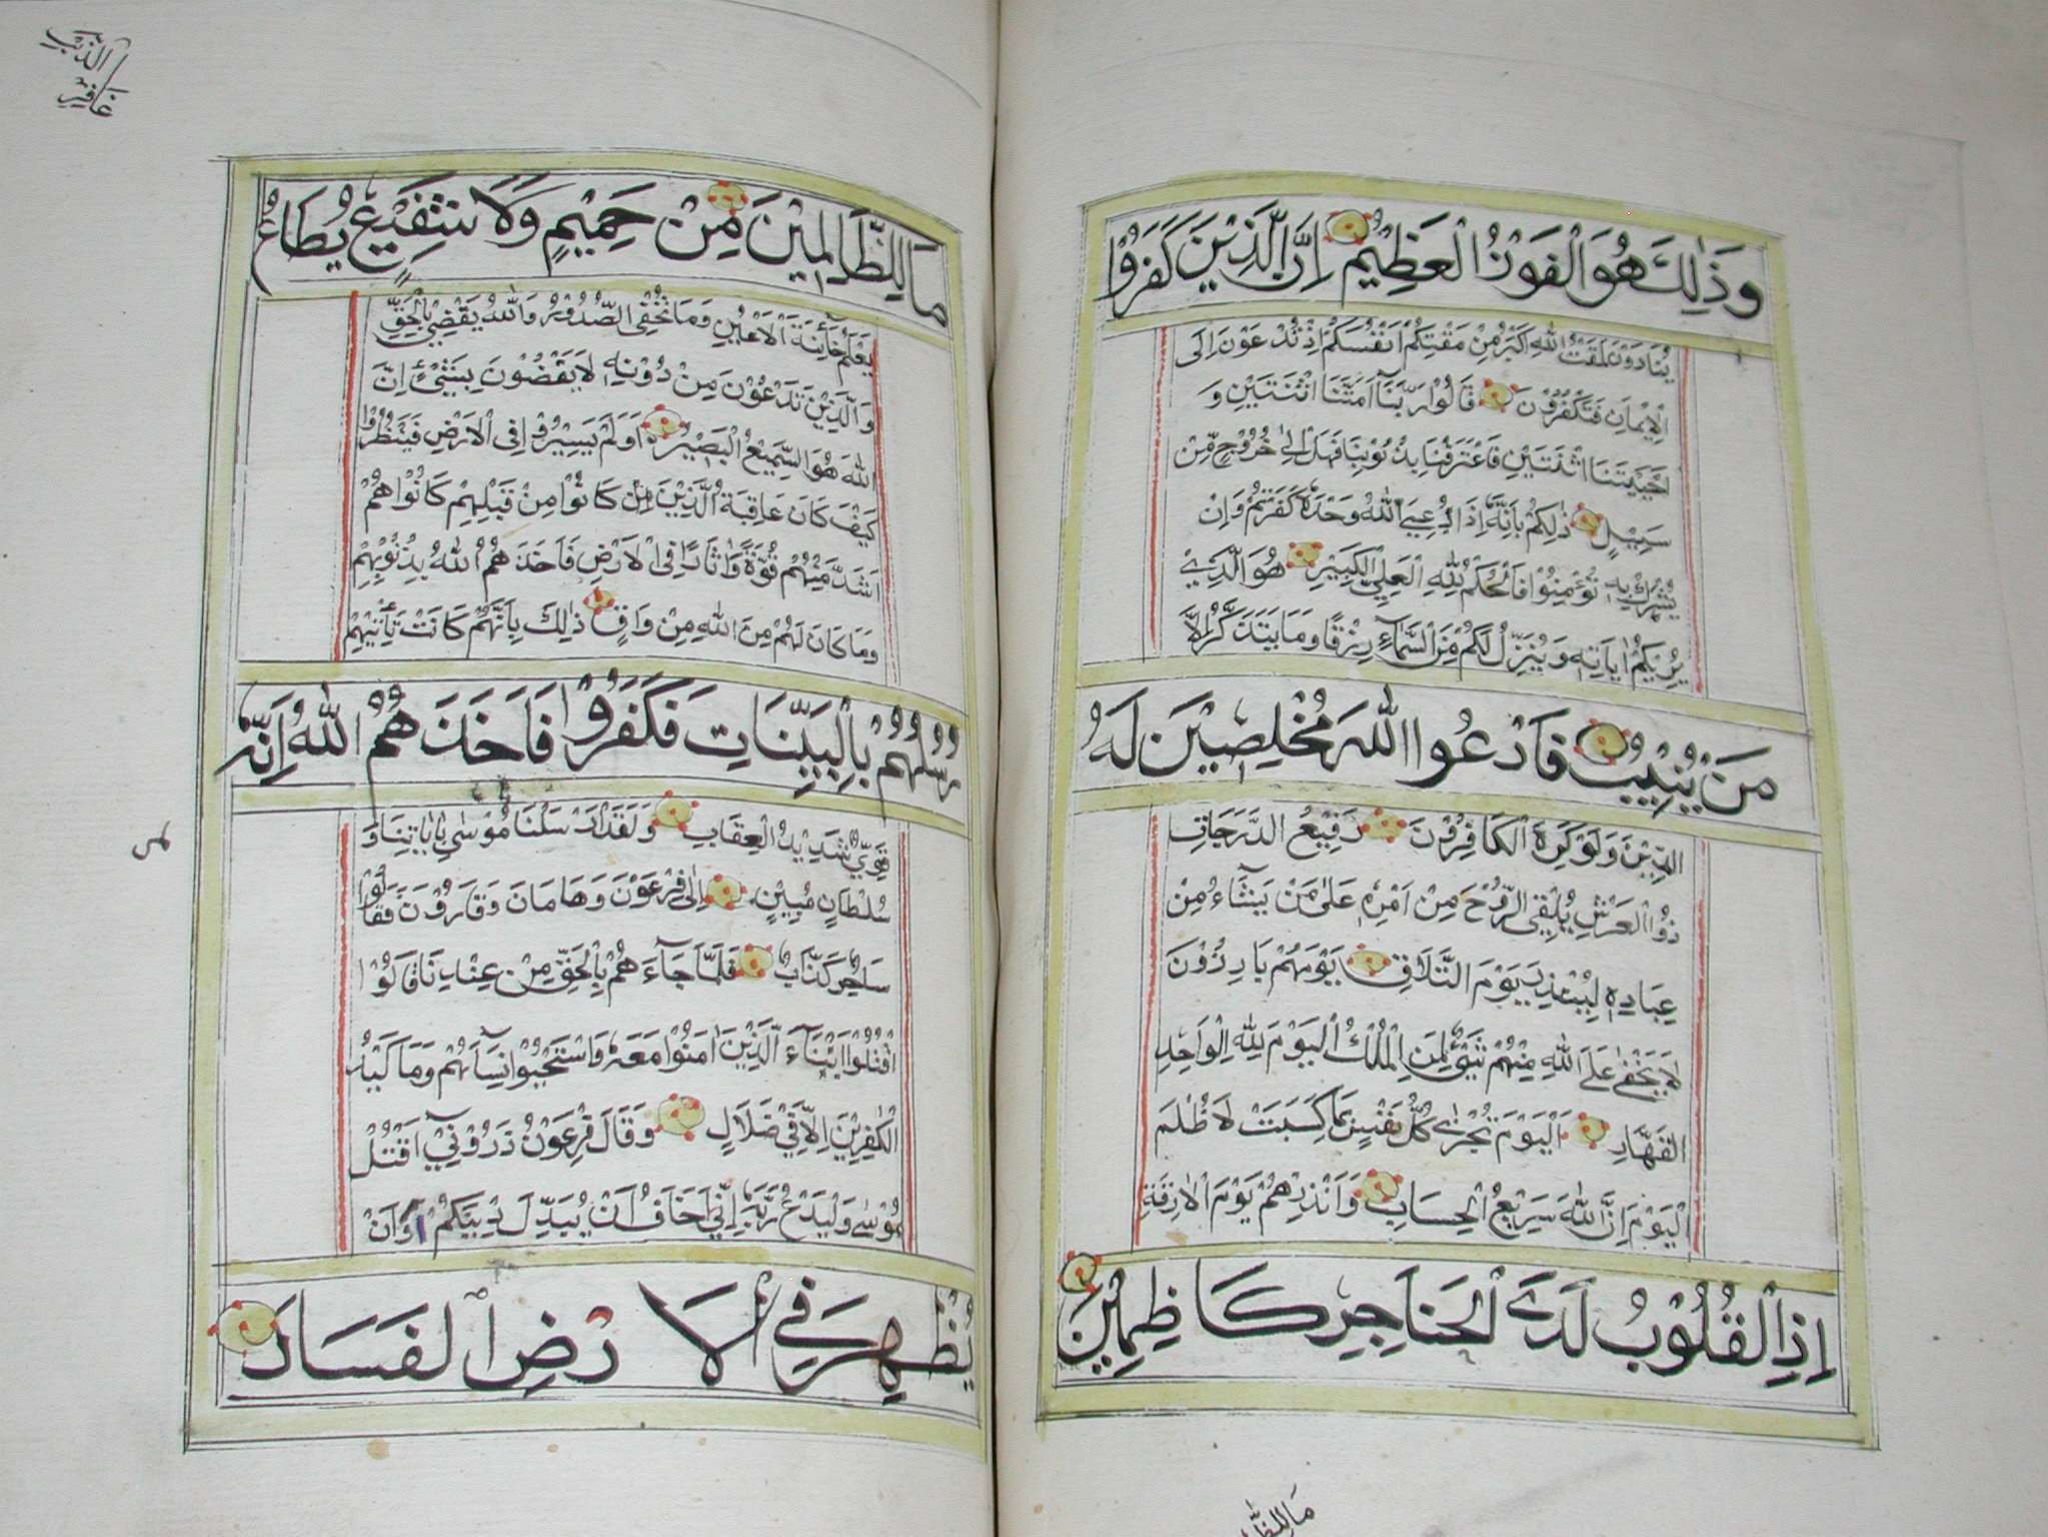 وَذٰلِكَ هُوَ الْفَوْزُ الْعَظِيْمُ اِنَّ الَّذِيْنَ كَفَرُوْا
يُنَادَوْنَ لَمَقْتُ اللّٰهِ اَكْبَرُ مِنْ مَقْتِكُمْ اَنْفُسَكُمْ اِذْ تُدْعَوْنَ اِلَى
الْاِيْمَانِ فَتَكْفُرُوْنَ قَالُوْا رَبَّنَا اَمَتَّنَا اثْنَتَيْنِ وَ
اَحْيَيْتَنَا اثْنَتَيْنِ فَاعْتَرَفْنَا بِذُنُوْبِنَا فَهَلْ اِلٰى خُرُوْجٍ مِّنْ
سَبِيْلٍ ذٰلِكُمْ بِاَنَّهٗ اِذَا دُعِيَ اللّٰهُ وَحْدَهٗ كَفَرْتُمْ وَاِنْ
يُشْرَكْ بِهٖ تُؤْمِنُوْا فَالْحُكْمُ لِلّٰهِ الْعَلِيِّ الْكَبِيْرِ هُوَ الَّذِيْ
يُرِيْكُمْ اٰيَاتِهٖ وَيُنَزِّلُ لَكُمْ مِّنَ السَّمَآءِ رِزْقًا وَمَا يَتَذَكَّرُ اِلَّا
مَنْ يُنِيْبُ فَادْعُوا اللّٰهَ مُخْلِصِيْنَ لَهُ
الدِّيْنَ وَلَوْ كَرِهَ الْكَافِرُوْنَ رَفِيْعُ الدَّرَجَاتِ
ذُو الْعَرْشِ يُلْقِى الرُّوْحَ مِنْ اَمْرِهٖ عَلٰى مَنْ يَشَاءُ مِنْ
عِبَادِهٖ لِيُنْذِرَ يَوْمَ التَّلَاقِ يَوْمَهُمْ بَارِزُوْنَ
لَا يَخْفٰى عَلَى اللّٰهِ مِنْهُمْ شَيْءٌ لِمَنِ الْمُلْكُ الْيَوْمَ لِلّٰهِ الْوَاحِدِ
الْقَهَّارِ اَلْيَوْمَ تُجْزٰى كُلُّ نَفْسٍ بِمَا كَسَبَتْ لَا ظُلْمَ
الْيَوْمَ اِنَّ اللّٰهَ سَرِيْعُ الْحِسَابِ وَاَنْذِرْهُمْ يَوْمَ الْاٰزِفَةِ
اِذِ الْقُلُوْبُ لَدَى الْحَنَاجِرِ كَاظِمِيْنَ
مَا لِلظّٰا
الذنب
غافر
مَا لِلظَّالِمِيْنَ مِنْ حَمِيْمٍ وَلَا شَفِيْعٍ يُطَاعُ
يَعْلَمُ خَآئِنَةَ الْاَعْيُنِ وَمَا تُخْفِى الصُّدُوْرُ وَاللّٰهُ يَقْضِيْ بِالْحَقِّ
وَالَّذِيْنَ تَدْعُوْنَ مِنْ دُوْنِهٖ لَا يَقْضُوْنَ بِشَيْءٍ اِنَّ
اللّٰهَ هُوَ السَّمِيْعُ الْبَصِيْرُ اَوَلَمْ يَسِيْرُوْا فِى الْاَرْضِ فَيَنْظُرُوْا
كَيْفَ كَانَ عَاقِبَةُ الَّذِيْنَ كَانُوْا مِنْ قَبْلِهِمْ كَانُوْا هُمْ
اَشَدَّ مِنْهُمْ قُوَّةً وَّاٰثَارًا فِى الْاَرْضِ فَاَخَذَهُمُ اللّٰهُ بِذُنُوْبِهِمْ
وَمَا كَانَ لَهُمْ مِنَ اللّٰهِ مِنْ وَاقٍ ذٰلِكَ بِاَنَّهُمْ كَانَتْ تَأْتِيْهِمْ
رُسُلُهُمْ بِالْبَيِّنَاتِ فَكَفَرُوْا فَاَخَذَهُمُ اللّٰهُ اِنَّهٗ
قَوِيٌّ شَدِيْدُ الْعِقَابِ وَلَقَدْ اَرْسَلْنَا مُوْسٰى بِاٰيَاتِنَا وَ
سُلْطَانٍ مُبِيْنٍ اِلٰى فِرْعَوْنَ وَهَامَانَ وَقَارُوْنَ فَقَالُوْا
سَاحِرٌ كَذَّابٌ فَلَمَّا جَآءَهُمْ بِالْحَقِّ مِنْ عِنْدِنَا قَالُوْا
اقْتُلُوْا اَبْنَآءَ الَّذِيْنَ اٰمَنُوْا مَعَهٗ وَاسْتَحْيُوْا نِسَآءَهُمْ وَمَا كَيْدُ
الْكٰفِرِيْنَ اِلَّا فِيْ ضَلَالٍ وَقَالَ فِرْعَوْنُ ذَرُوْنِيْ اَقْتُلْ
مُوْسٰى وَلْيَدْعُ رَبَّهٗ اِنِّيْ اَخَافُ اَنْ يُبَدِّلَ دِيْنَكُمْ اَوْ اَنْ
يُظْهِرَ فِي الْاَرْضِ الْفَسَادَ